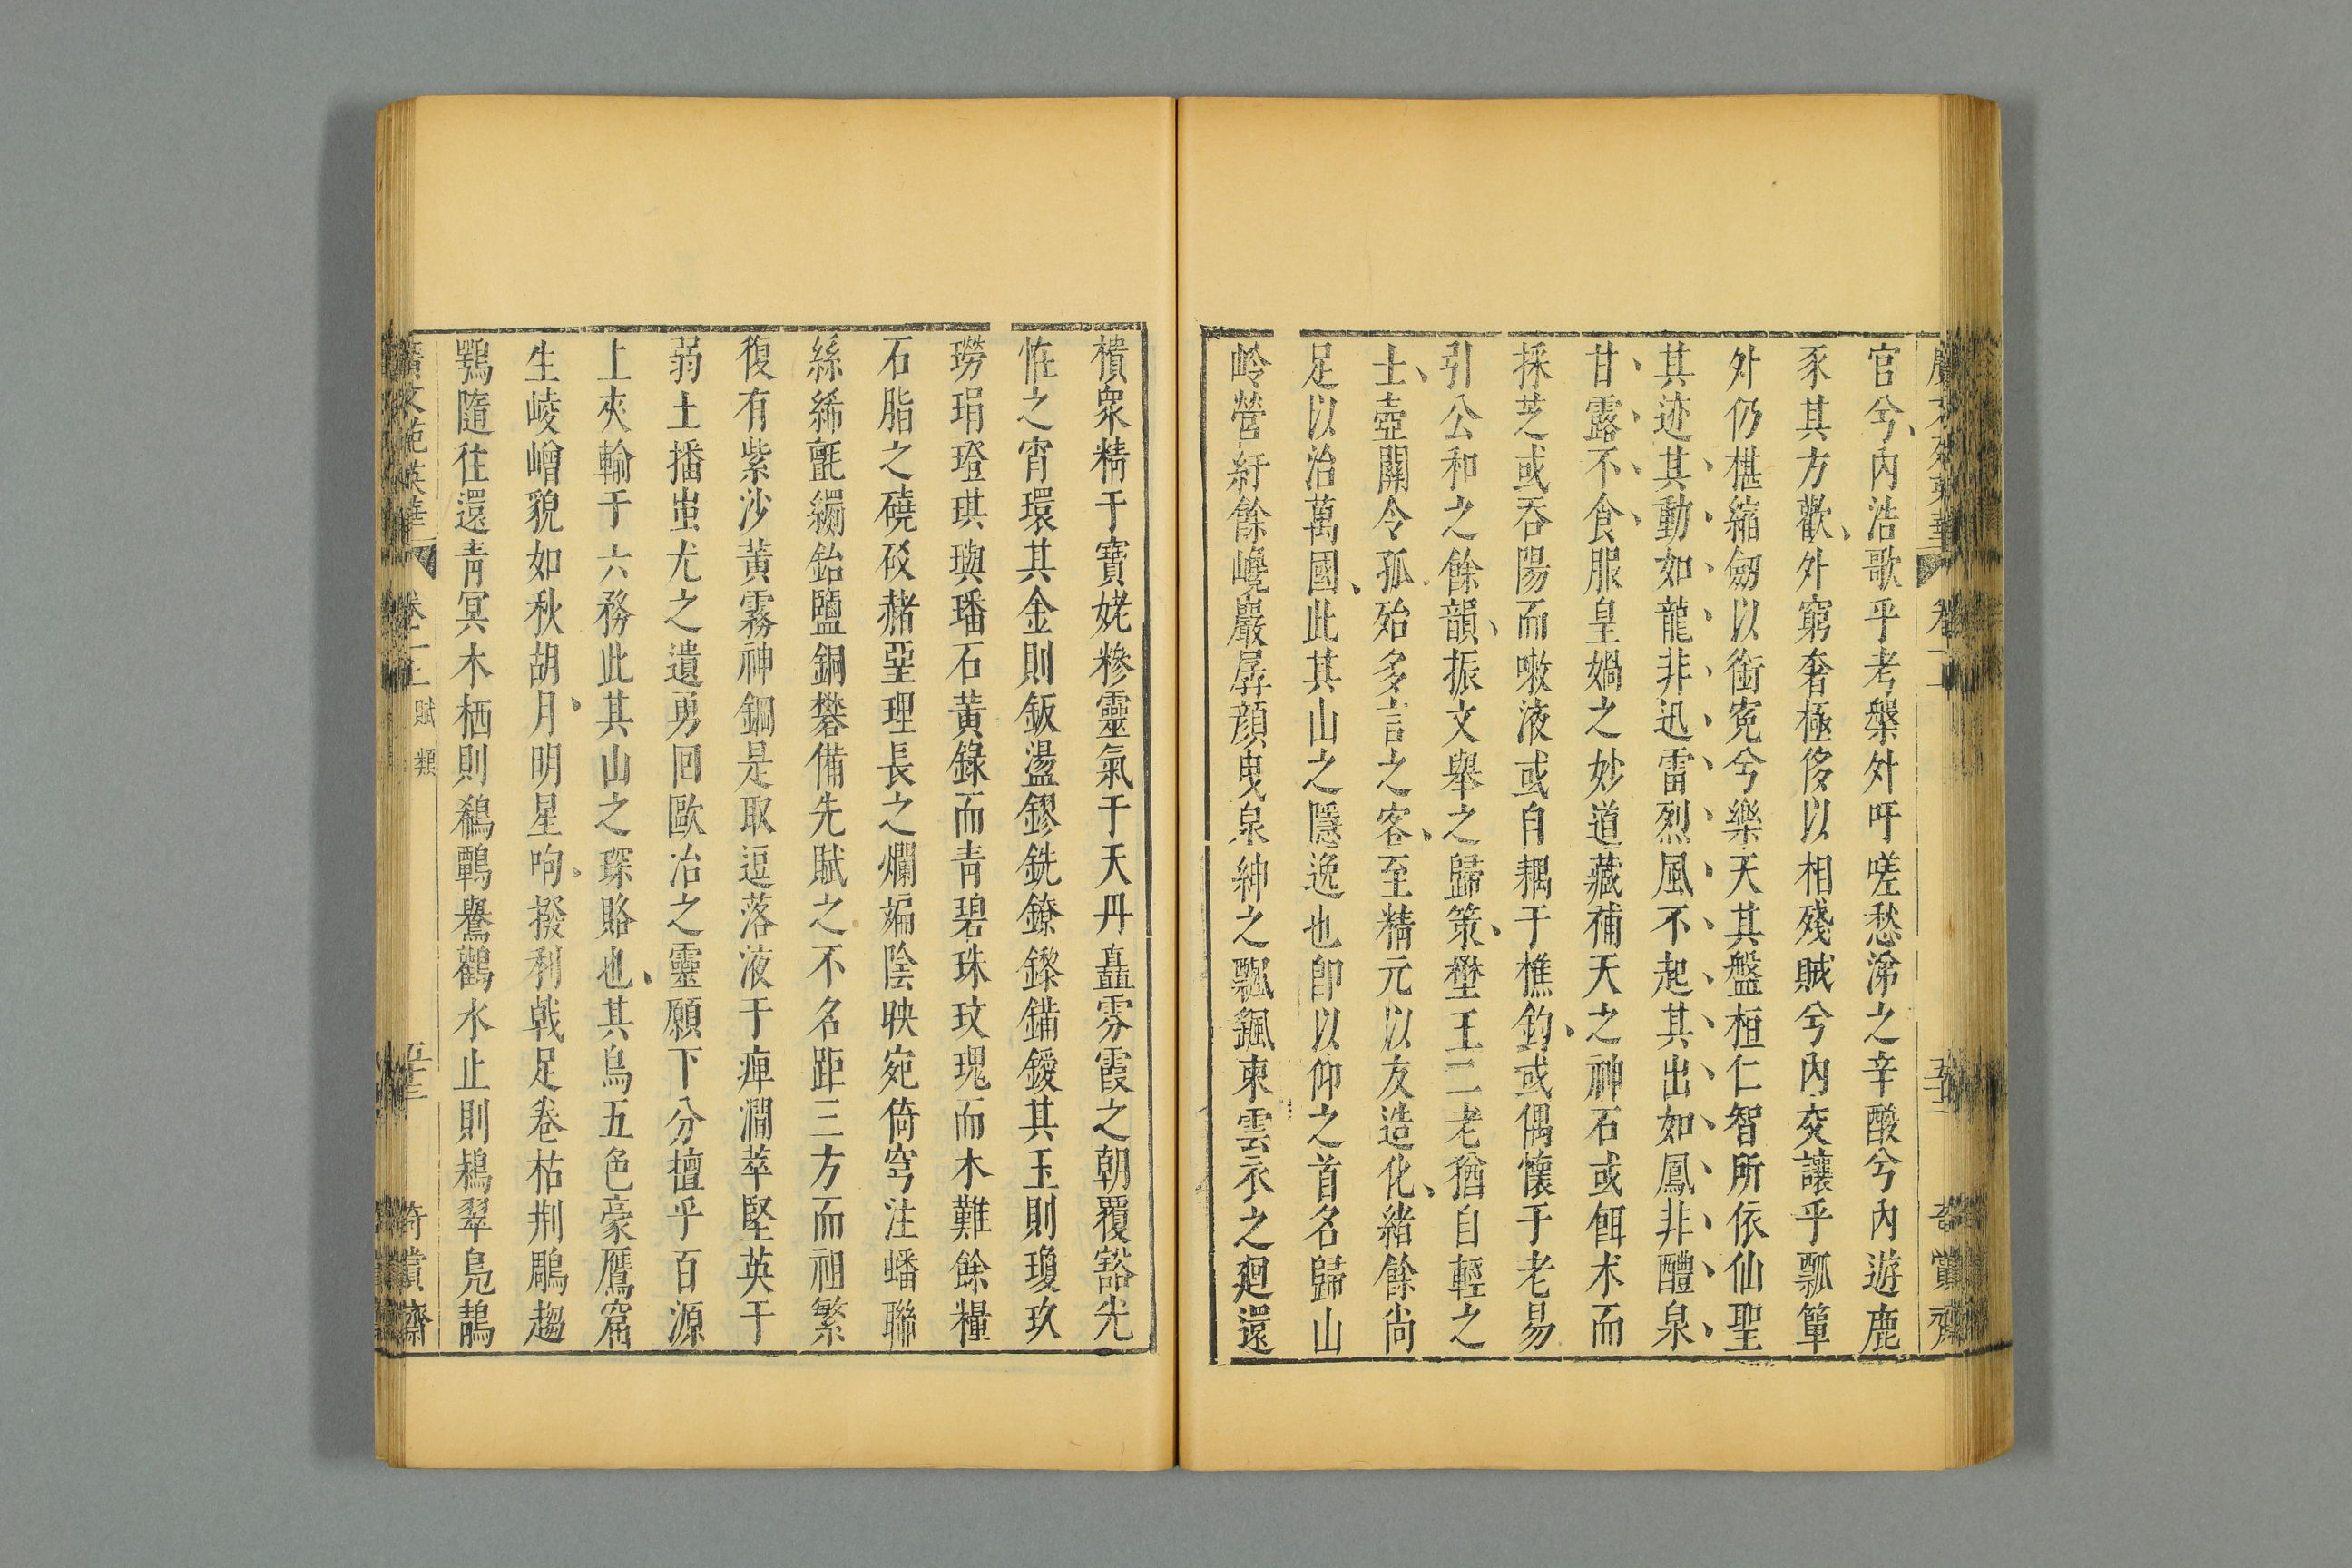 官兮內浩歌乎考槃外吁嗟愁涕之辛酸兮內遊鹿
豕其方歡外窮奢極侈以相殘賊兮內交讓乎瓢簞
外仍椹縮劒以銜寃兮樂天其盤桓仁智所依仙聖
其迹其動如龍非迅雷烈風不起其出如鳳非醴泉
甘露不食服皇媧之妙道藏補天之神石或餌术而
採芝或吞陽而嗽液或自耦于樵釣或偶懷于老易
引公和之餘韻振文舉之歸策壄王二老猶自輕之
士壺關令孤殆多言之客至精元以友造化緒餘尚
足以治萬國此其山之隱逸也卽以仰之首名歸山
岭營紆餘巉巖孱顔曳泉紳之飄颻柬雲衣之廻還
積衆精于寶姥糝靈氣于天丹矗雰霞之朝覆豁光
恠之宵環其金則鈑璗鏐銑鐐鏫錨鍐其玉則瓊玖
璓琄璒琪璵璠石黃錄而青碧珠玟瑰而木難餘糧
石脂之磽砐赭堊理長之爛斒陰映宛倚穹注蟠聯
絲絺氈纙鉛鹽銅礬備先賦之不名距三方而祖繁
復有紫沙黃霧神鋼是取逗落液于痺澗萃堅英于
弱土播蚩尤之遺勇回歐冶之靈願下分擅乎百源
上夾輸于六務此其山之琛賂也其鳥五色豪鷹窟
生崚嶒貌如秋胡月明星昫撥利戟足卷枯荆鵰趨
鶚隨往還青冥木栖則鷦鸅鸒鸛水止則鵁翠鳧鶄
廣文苑英華 卷十二 賦類 五十三 奇賞齋